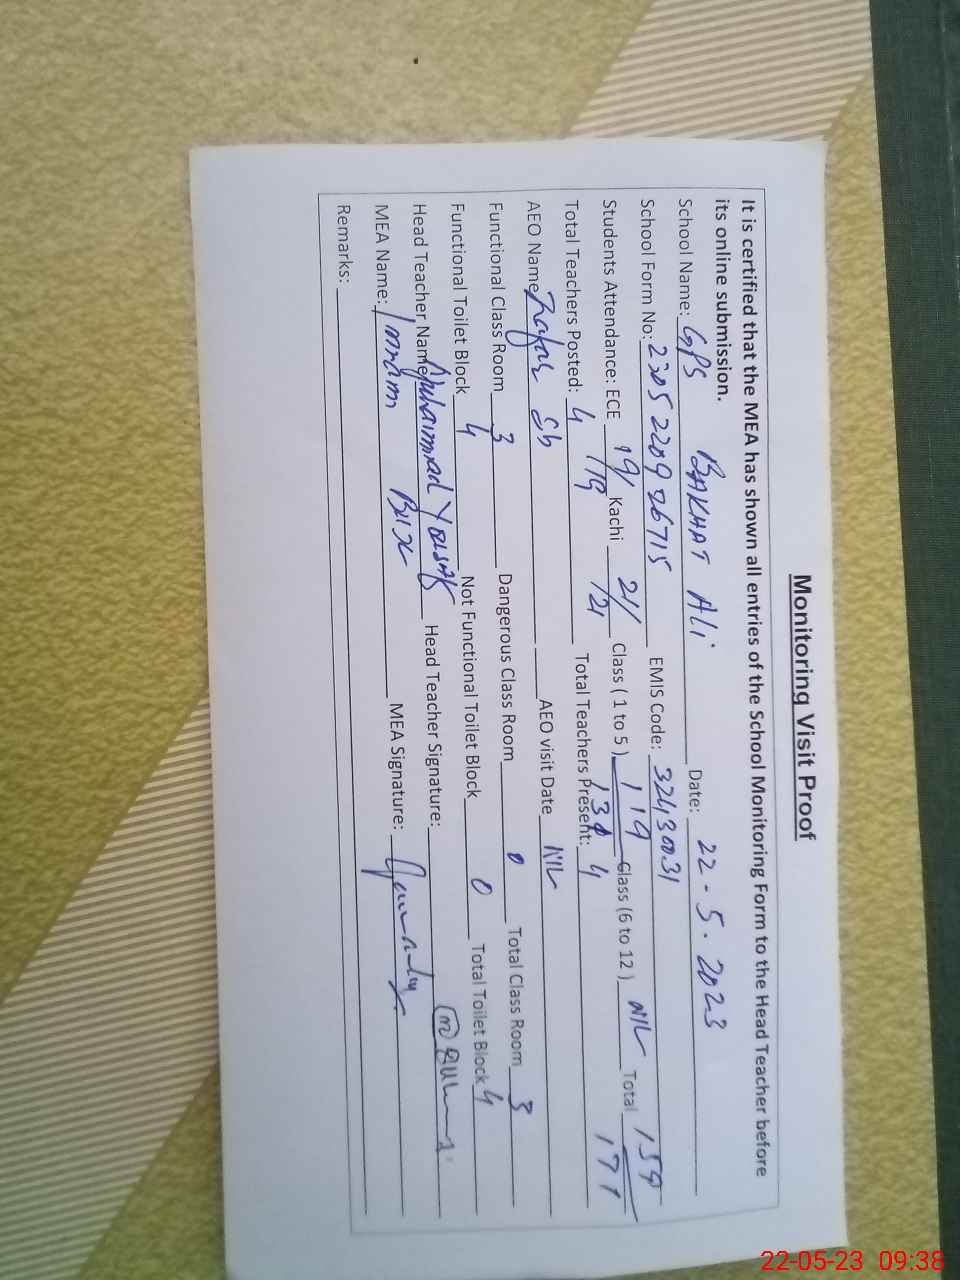 Monitoring Visit Proof
It is certified that the MEA has shown all entries of the School Monitoring Form to the Head Teacher before
its online submission.
School Name: GPS BAKHAT Ali Date: 22-5.2023
School Form No: 2305220926715 EMIS Code: 32430031
Students Attendance: ECE 19/19 Kachi 21/21 Class ( 1 to 5 ) 119/131 Class (6 to 12 ) NIL Total 159/171
Total Teachers Posted: 4 Total Teachers Present: 4
AEO Name Zafar Sb AEO visit Date NIL
Functional Class Room 3 Dangerous Class Room 0 Total Class Room 3
Functional Toilet Block 4 Not Functional Toilet Block 0 Total Toilet Block 4
Head Teacher Name Muhammad Yousaf Head Teacher Signature:
MEA Name: Imram Bux MEA Signature:
Remarks:
22-05-23 09:38